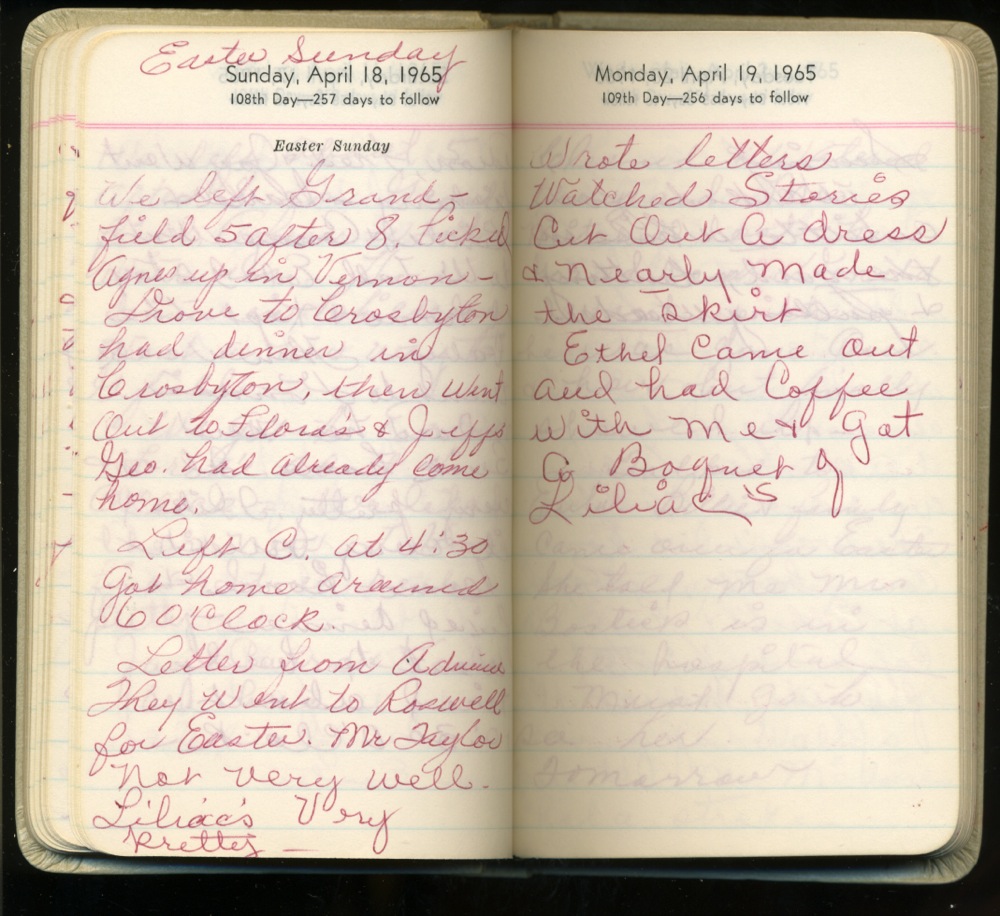 Easter Sunday
Sunday, April 18, 1965
108th Day—257 days to follow
Easter Sunday
We left Grand-
field 5 after 8. Picked
Agnes up in Vernon -
Drove to Crosbyton
had dinner in
Crosbyton, then went
Out to Floras & Jeffs
Geo. had already come
home.
Left C. at 4:30
Got home around
6 O'Clock.
Letter from
They Went to Roswell
for Easter. Mr Taylor
Not Very Well.
Liliac's Very
Pretty -
Monday, April 19, 1965
109th Day—256 days to follow
Wrote letters
Watched Stories
Cut Out A dress
& Nearly Made
the Skirt
Ethel Came Out
and had Coffee
With Me & Got
A Boquet of
Liliac's